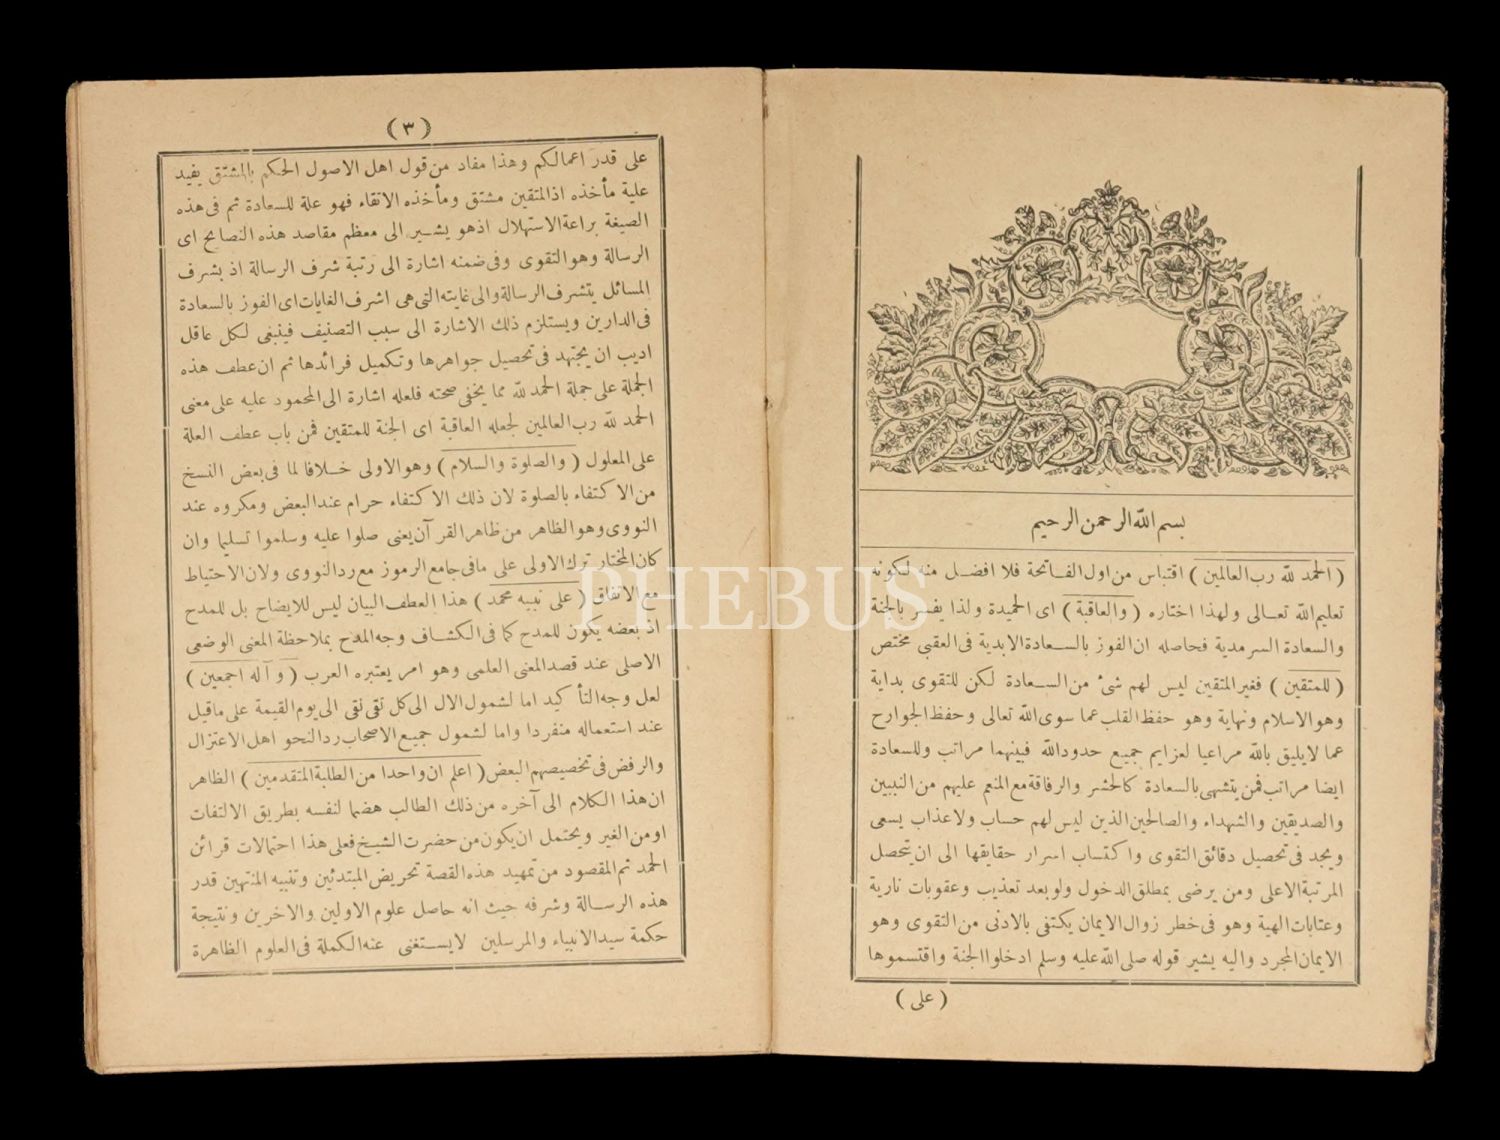 بسم الله الرحمن الرحيم
( الحمد لله رب العالمين ) اقتباس من اول الفاتحة فلا افضل منه لكونه
تعليم الله تعالى ولهذا اختاره ( والعاقبة ) اى الحميدة ولذا يفسر بالجنة
والسعادة السرمدية فحاصله ان الفوز بالسعادة الابدية فى العقبى مختص
( للمتقين ) فغير المتقين ليس لهم شئ من السعادة لكن للتقوى بداية
وهو الاسلام ونهاية وهو حفظ القلب عما سوى الله تعالى وحفظ الجوارح
عما لايليق بالله مراعيا لعزايم جميع حدود الله فبينهما مراتب وللسعادة
ايضا مراتب فمن يتشهى بالسعادة كالحشر والرفاقة مع المنعم عليهم من النبيين
والصديقين والشهداء والصالحين الذين ليس لهم حساب ولا عذاب يسعى
ويجد فى تحصيل دقائق التقوى واكتساب اسرار حقايقها الى ان يتحصل
المرتبة الاعلى ومن يرضى بمطلق الدخول ولو بعد تعذيب وعقوبات نارية
وعتابات الهية وهو فى خطر زوال الايمان يكتفى بالادنى من التقوى وهو
الايمان المجرد واليه يشير قوله صلى الله عليه وسلم ادخلوا الجنة واقتسموها
( على )
( ٣ )
على قدر اعمالكم وهذا مفاد من قول اهل الاصول الحكم بالمشتق يفيد
علية مأخذه اذ المتقين مشتق ومأخذه الاتقاء فهو علة للسعادة ثم فى هذه
الصيغة براعة الاستهلال اذ هو يشير الى معظم مقاصد هذه النصايح اى
الرسالة وهو التقوى وفى ضمنه اشارة الى رتبة شرف الرسالة اذ بشرف
المسائل يتشرف الرسالة والى غايته التى هى اشرف الغايات اى الفوز بالسعادة
فى الدارين ويستلزم ذلك الاشارة الى سبب التصنيف فينبغى لكل عاقل
اديب ان يجتهد فى تحصيل جواهرها وتكميل فرائدها ثم ان عطف هذه
الجملة على جملة الحمد لله مما يخفى صحته فلعله اشارة الى المحمود عليه على معنى
الحمد لله رب العالمين لجعله العاقبة اى الجنة للمتقين فمن باب عطف العلة
على المعلول ( والصلوة والسلام ) وهو الاولى خلافا لما فى بعض النسخ
من الاكتفاء بالصلوة لان ذلك الاكتفاء حرام عند البعض ومكروه عند
النووى وهو الظاهر من ظاهر القرآن يعنى صلوا عليه وسلموا تسليما وان
كان المختار ترك الاولى على مافى جامع الرموز مع رد النووى ولان الاحتياط
مع الاتفاق ( على نبيه محمد ) هذا العطف البيان ليس للايضاح بل للمدح
اذ بعضه يكون للمدح كما فى الكشاف وجه المدح بملاحظة المعنى الوضعى
الاصلى عند قصد المعنى العلمى وهو امر يعتبره العرب ( وآله اجمعين )
لعل وجه التأكيد اما لشمول الال الى كل تقى نقى الى يوم القيمة على ماقيل
عند استعماله منفردا واما لشمول جميع الاصحاب رد النحو اهل الاعتزال
والرفض فى تخصيصهم البعض ( اعلم ان واحدا من الطلبة المتقدمين ) الظاهر
ان هذا الكلام الى آخره من ذلك الطالب هضما لنفسه بطريق الالتفات
او من الغير ويحتمل ان يكون من حضرت الشيخ فعلى هذا احتمالات قرائن
الحمد ثم المقصود من تمهيد هذه القصة تحريض المبتدئين وتنبيه المنتهين قدر
هذه الرسالة وشرفه حيث انه حاصل علوم الاولين والاخرين ونتيجة
حكمة سيد الانبياء والمرسلين لايستغنى عنه الكملة فى العلوم الظاهرة
PHEBUS